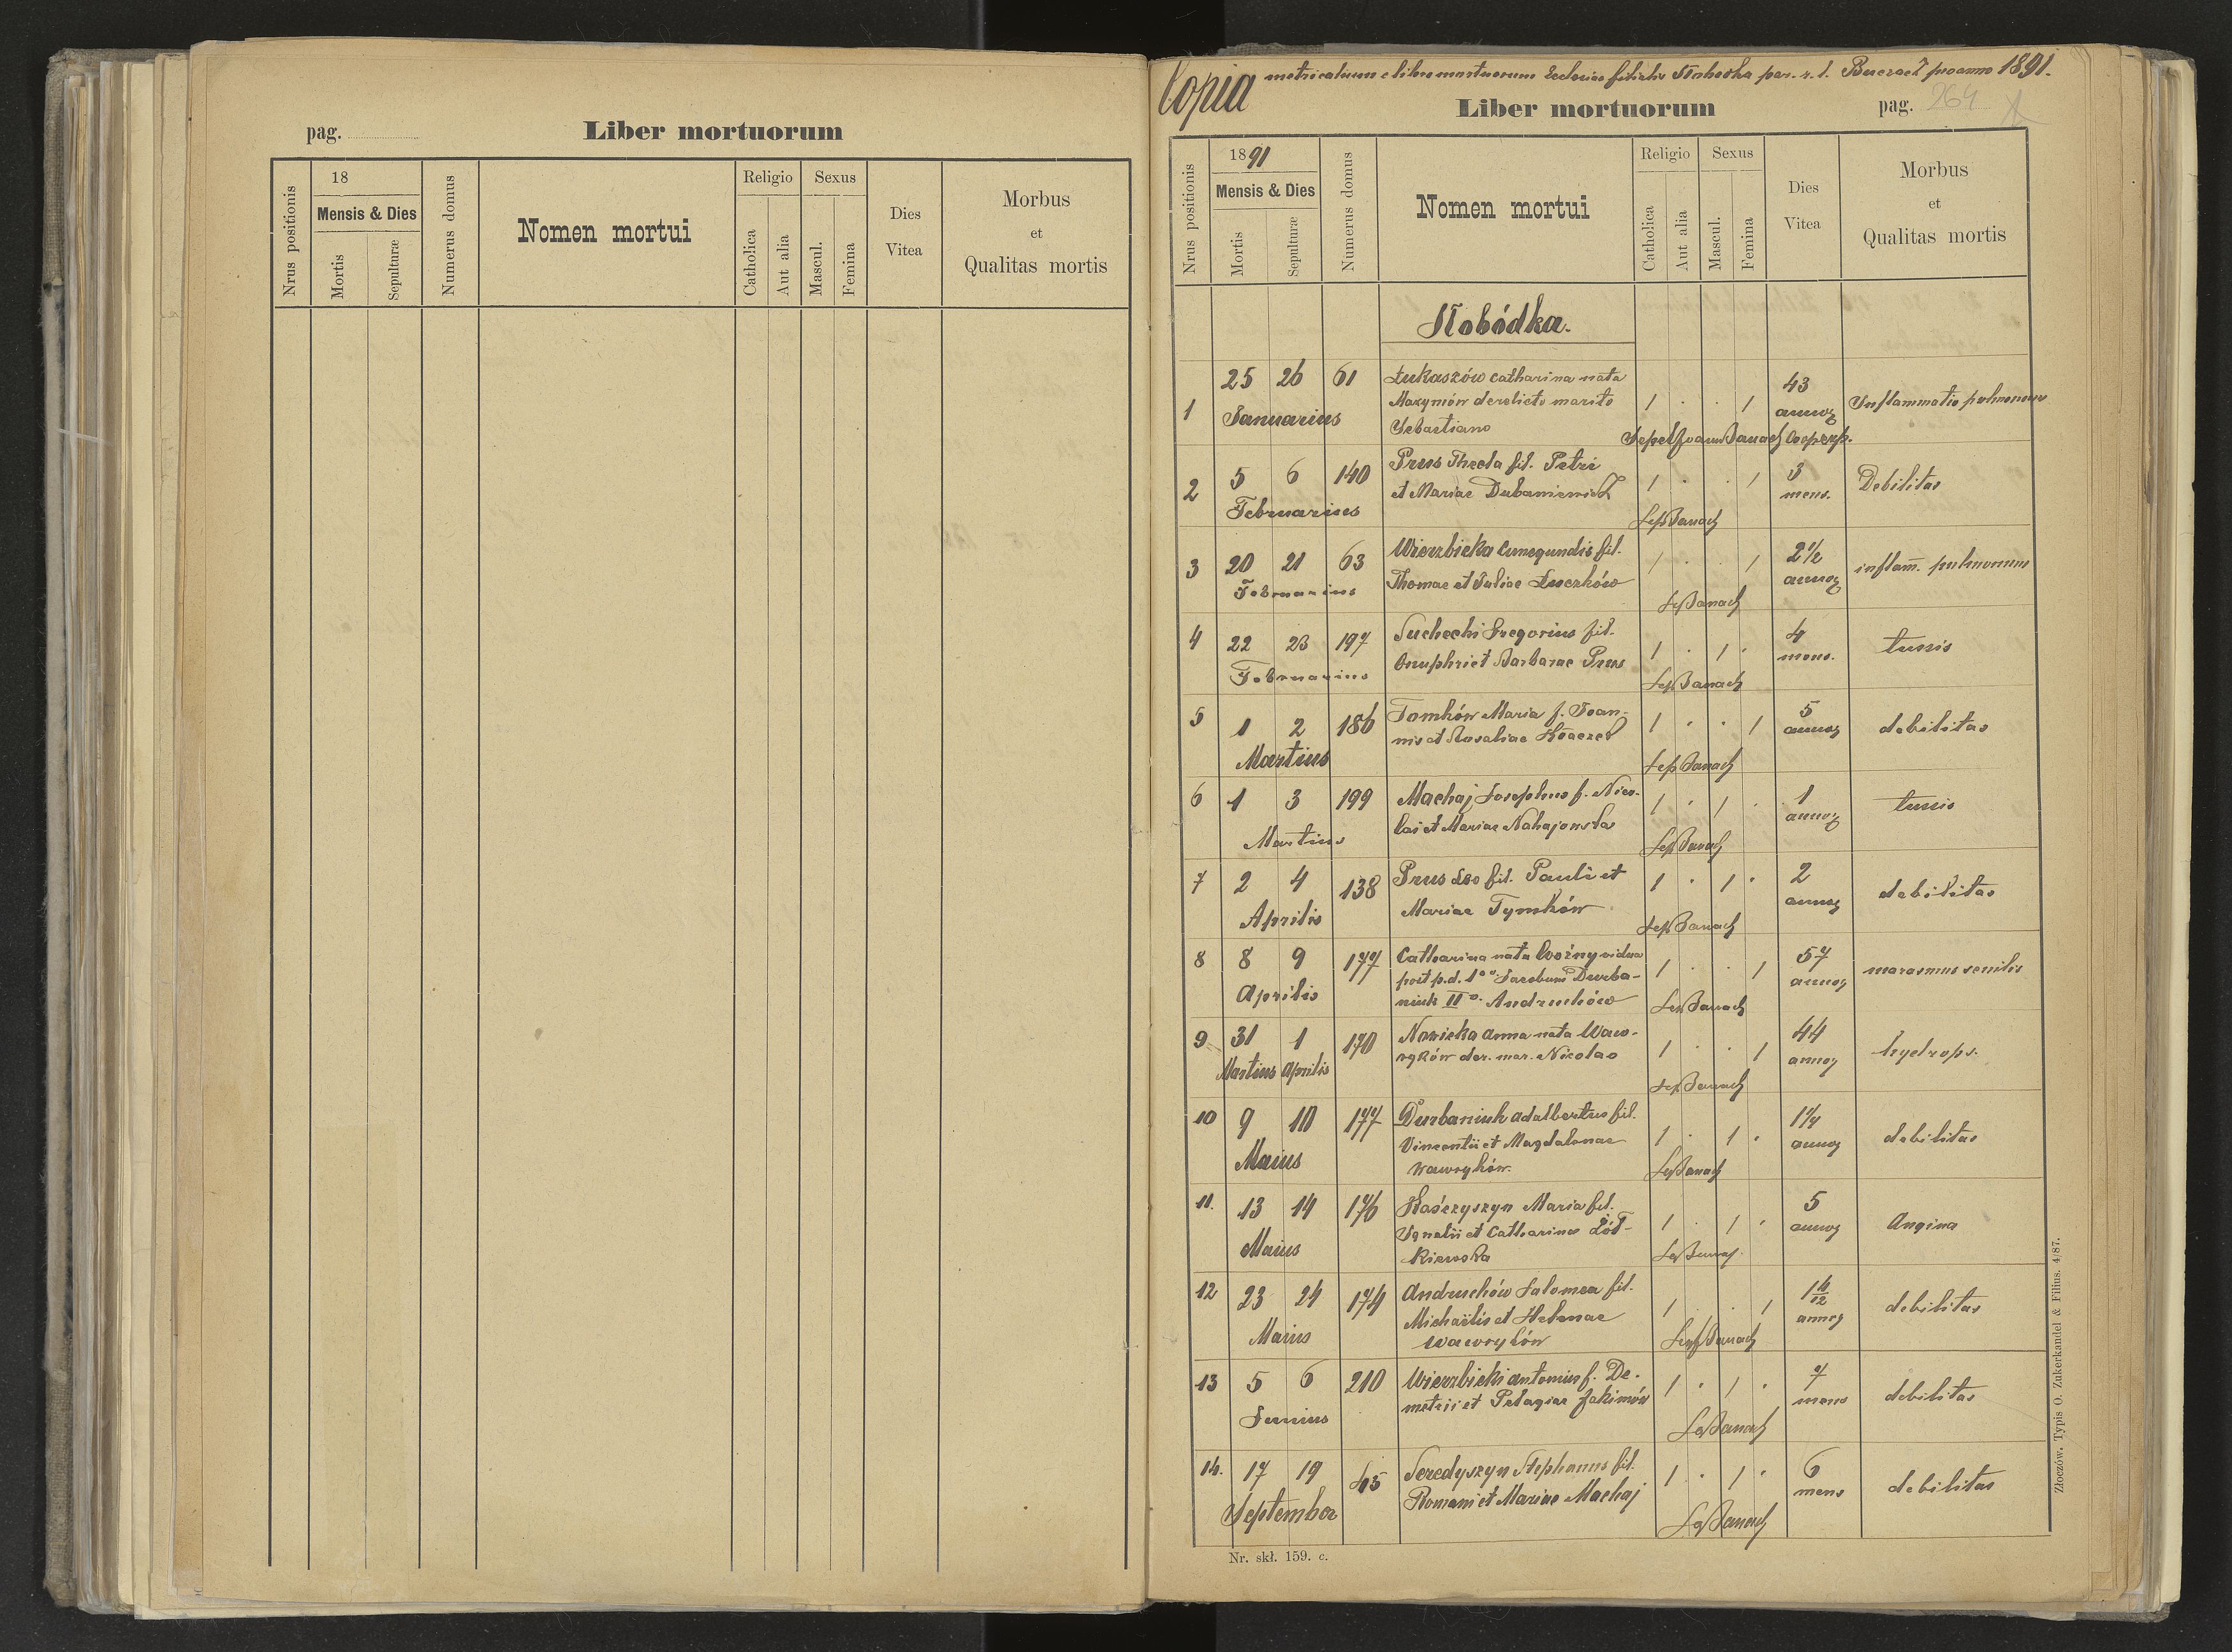 pag.
Liber mortuorum
Nrus positionis
18
Mensis & Dies
Mortis
Sepulturæ
Numerus domus
Nomen mortui
Religio
Catholica
Aut alia
Sexus
Mascul.
Femina
Dies
Vitea
Morbus
et
Qualitas mortis
Copia metricalium e libro mortuorum Ecclesiae filialis par. r. l. Buczacz pro anno 1891.
Liber mortuorum
pag. 264
Nrus positionis
1891
Mensis & Dies
Mortis
Sepulturæ
Numerus domus
Nomen mortui
Religio
Catholica
Aut alia
Sexus
Mascul.
Femina
Dies
Vitea
Morbus
et
Qualitas mortis
Słobódka.
1 25 26 61 Łukaszów Catharina nata 43
Januarius Maxymów derelicto marito 1 . . 1 annor Inflammatio pulmonum
Sebastiano
Sepel Joann Banach Cooper.
2 5 6 140 Prus Thecla fil. Petri 1 . . 1 3
Februarius et Mariae Dubaniewicz mens. Debilitas
Sep Banach
3 20 21 63 Wierzbicka Cunegundis fil. 1 . . 1 2 1/2
Februarius Thomae et Juliae Łuczków annor inflam. pulmonum
Sep Banach
4 22 23 197 Suchecki Gregorius fil. 1 . 1 . 4
Februarius Onuphri et Barbarae Prus mens. tussis
Sep Banach
5 1 2 186 Tomków Maria f. Joan- 1 . . 1 5
Martius nis et Rosaliae annor debilitas
Sep Banach
6 1 3 199 Machaj Josephus f. Nico- 1 . 1 . 1
Martius lai et Mariae Nahajowska annor tussis
Sep Banach
7 2 4 138 Prus Leo fil. Pauli et 1 . 1 . 2
Aprilis Mariae Tymków annor debilitas
Sep Banach
8 8 9 177 Catharina nata Woźny vidua 57
Aprilis post p.d. 1o Jacobum Durba- 1 . . 1 annor marasmus senilis
niuk IIo Andruchów
Sep Banach
9 31 1 170 Nowicka Anna nata Waw- 44
Martius Aprilis ryków der. mar. Nicolao 1 . . 1 annor hydrops.
Sep Banach
10 9 10 177 Durbaniuk Adalbertus fil.
Maius Vincentii et Magdalenae 1 . 1 . annor debilitas
Wawryków
Sep Banach
11. 13 14 176 Kaśczyszyn Maria fil. 5
Maius Ignatii et Catharinae Żół- 1 . 1 . annor Angina
kiewska
Sep Banach
12 23 24 174 Andruchów Salomea fil.
Maius Michaëlis et Helenae 1 . . 1 annor debilitas
Wawryków
Sep Banach
13 5 6 210 Wierzbicki Antonius f. De- 1 . 1 . 7
Junius metrii et Pelagiae Jakimów mens debilitas
Sep Banach
14. 17 19 45 Seredyszyn Stephanus fil. 1 . 1 . 6
September Romani et Mariae Machaj mens debilitas
Sep Banach
Nr. skł. 159. c.
Złoczów. Typis O. Zukerkandel & Filius. 4/87.